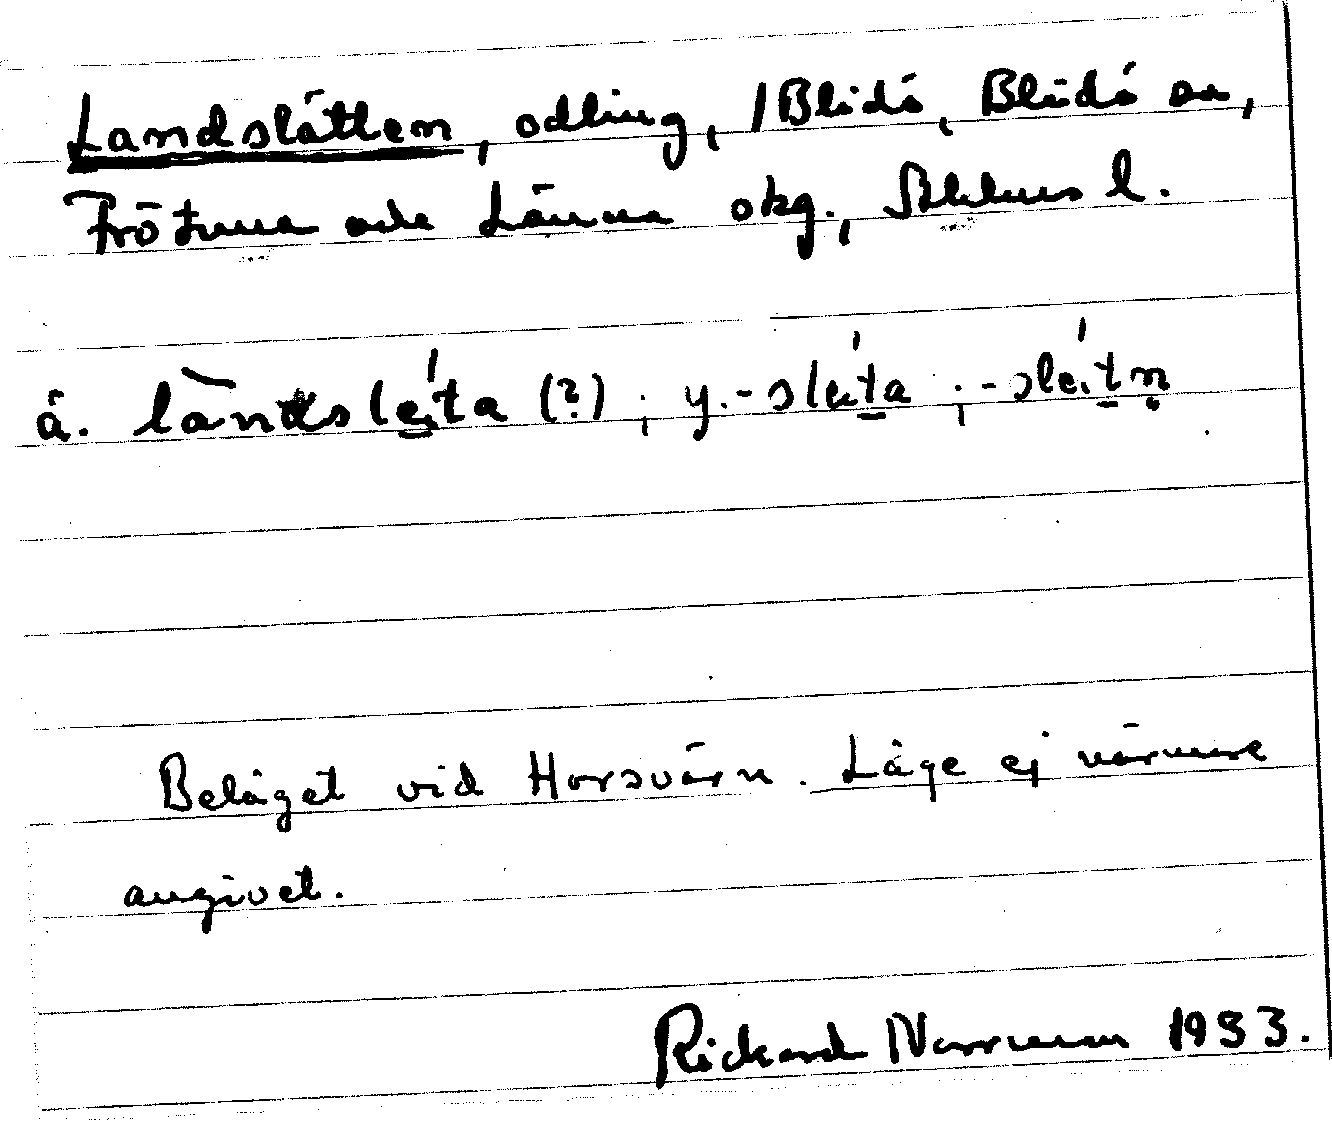 Landslätten, odling, /Blidö, Blidö sn,
Frötuna och Länna skg., Sthlms l.
ä. làndsle̠ta (?) ; y. -slet̠a ; -slet̠n̥
Beläget vid Horsvärn. Läge ej närmare
angivet.
Rickard Norrman 1953.